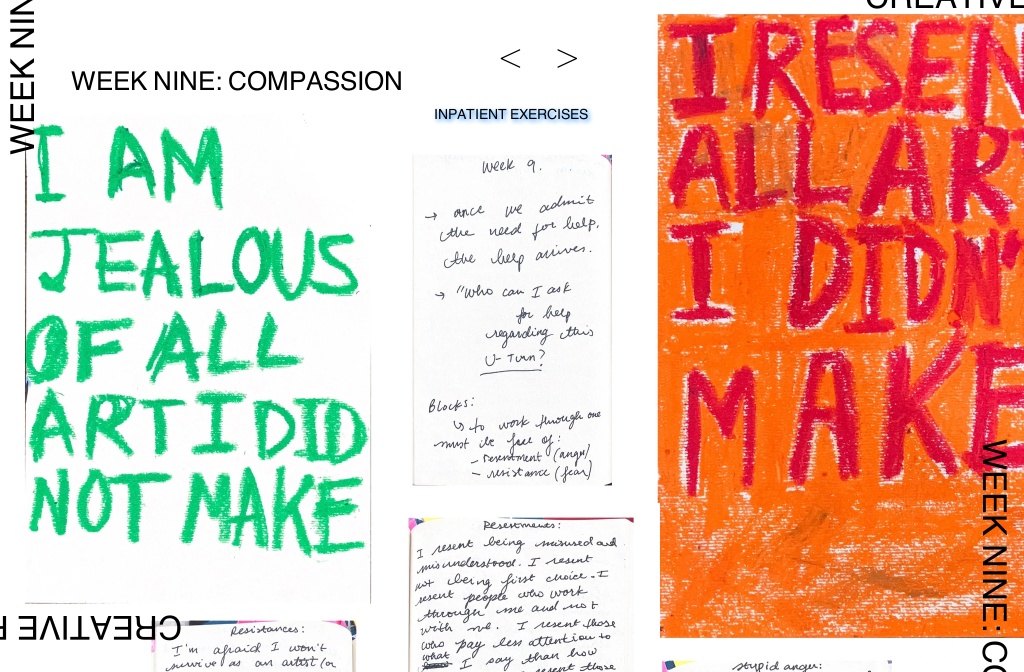 WEEK NIN
WEEK NINE: COMPASSION
< >
INPATIENT EXERCISES
CREATIVE
I AM
JEALOUS
OF ALL
ART I DID
NOT MAKE
Week 9.
→ once we admit
the need for help,
the help arrives.
→ "Who can I ask
for help
regarding this
U-Turn?
Blocks:
↳ to work through one
must be face of:
- resentment (anger)
- resistance (fear)
Resentments:
I resent being misused and
misunderstood. I resent
not being first choice. I
resent people who work
through me and not
with me. I resent those
who pay less attention to
what I say than how
resent those
I RESEN
ALL AR
I DIDN'
MAKE
WEEK NINE: CO
CREATIVE R
Resistances:
I'm afraid I won't
survive as an artist (or
stupid anger: